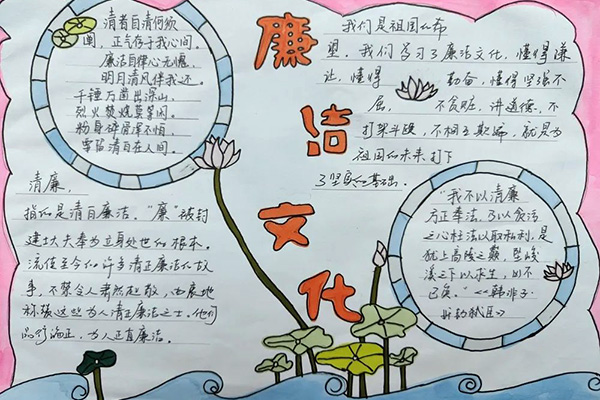 清者自清何须
闻，正气存于我心间。
廉洁自律心无愧，
明月清风伴我还。
千锤万凿出深山，
烈火焚烧若等闲。
粉身碎骨浑不怕，
要留清白在人间。
廉
洁
文
化
我们是祖国的希
望，我们学习了廉洁文化，懂得谦
让，懂得 勤奋，懂得坚强不
屈， 不贪赃，讲道德，不
打架斗殴，不相互欺骗，就是为
祖国的未来打下
了坚实的基础。
清廉，
指的是清白廉洁。“廉”被封
建士大夫奉为立身处世的根本。
流传至今的许多清正廉洁的故
事，不禁令人肃然起敬，由衷地
称赞这些为人清正廉洁之士。他们
品行端正，为人正直廉洁。
“我不以清廉
方正奉法，乃以贪污
之心枉法以取私利，是
犹上高陵之颠，堕峻
溪之下以求生，必不
已矣。”《韩非子·
奸劫弑臣》